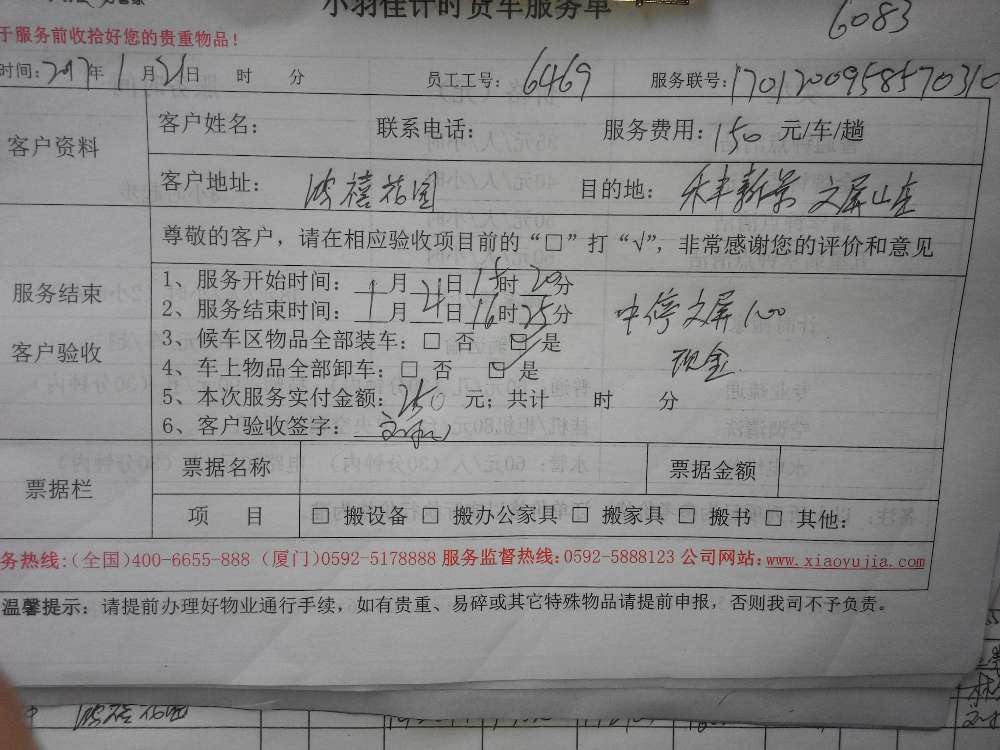 小羽佳计时货车服务单
6083
于服务前收拾好您的贵重物品！
时间：2017年1月21日 时 分 员工工号：6469 服务联号：1701200958570310
客户资料
客户姓名： 联系电话： 服务费用：150 元/车/趟
客户地址： 目的地：永丰新景 文屏山庄
尊敬的客户，请在相应验收项目前的“□”打“√”，非常感谢您的评价和意见
服务结束
客户验收
1、服务开始时间：1月21日15时20分
2、服务结束时间：1月21日16时25分
中停文屏100
3、候车区物品全部装车：□ 否 ☑ 是
现金
4、车上物品全部卸车：□ 否 ☑ 是
5、本次服务实付金额：250 元；共计 时 分
6、客户验收签字：
票据栏
票据名称 票据金额
项 目 □ 搬设备 □ 搬办公家具 □ 搬家具 □ 搬书 □ 其他：
务热线:(全国)400-6655-888 (厦门)0592-5178888 服务监督热线:0592-5888123 公司网站:www.xiaoyujia.com
温馨提示：请提前办理好物业通行手续，如有贵重、易碎或其它特殊物品请提前申报，否则我司不予负责。